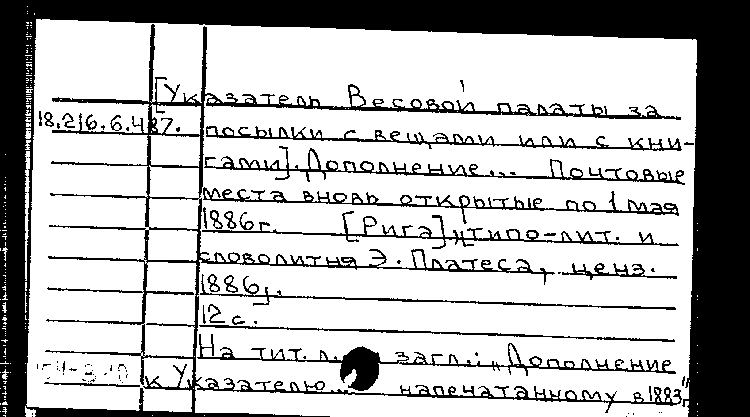 [Указатель Весовой палаты за
18.216.6.487. посылки с вещами или с кни-
гами]. Дополнение... Почтовые
места вновь открытые по 1 мая
1886г. [Рига], типо-лит. и
словолитня Э. Платеса, ценз.
1886.
12 с.
На тит. л. загл.: „Дополнение
к Указателю... напечатанному в 1883г."